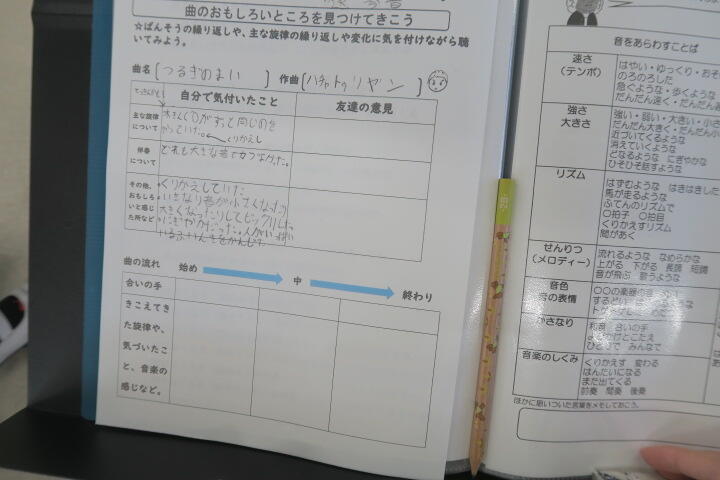 曲のおもしろいところを見つけてきこう
☆ばんそうの繰り返しや、主な旋律の繰り返しや変化に気を付けながら聴
いてみよう。
曲名〔つるぎのまい〕 作曲〔ハチャトゥリヤン〕
自分で気付いたこと 友達の意見
主な旋律
について
くりかえし
伴奏
について
どれも大きな音で
その他、
おもしろ
いと感じ
た所など
くりかえしていた。
いきなり音が小さくなったり
大きくなったりしてビックリした。
曲の流れ 始め 中 終わり
合いの手
きこえてき
た旋律や、
気づいたこ
と、音楽の
感じなど。
音をあらわすことば
速さ
(テンポ)
はやい・ゆっくり・おそ
のろのろした
急ぐような・歩くような
だんだん速く・だんだん
強さ
大きさ
強い・弱い・大きい・小さ
だんだん大きく・だんだん小
近づいてくるような
消えていくような
どなるような にぎやかな
ひそひそ話すような
リズム
はずむような はきはきした
馬が走るような
ふてんのリズムで
〇拍子 〇拍目
くりかえすリズム
間があく
せんりつ
(メロディー)
流れるような なめらかな
上がる 下がる 長調 短調
音が飛ぶ 歌うような
音色
音の表情
〇〇の楽器の
かさなり
和音 合いの手
みんなで
音楽のしくみ
くりかえす 変わる
はんたいになる
また出てくる
前奏 間奏 後奏
ほかに思いついた言葉をメモしておこう。